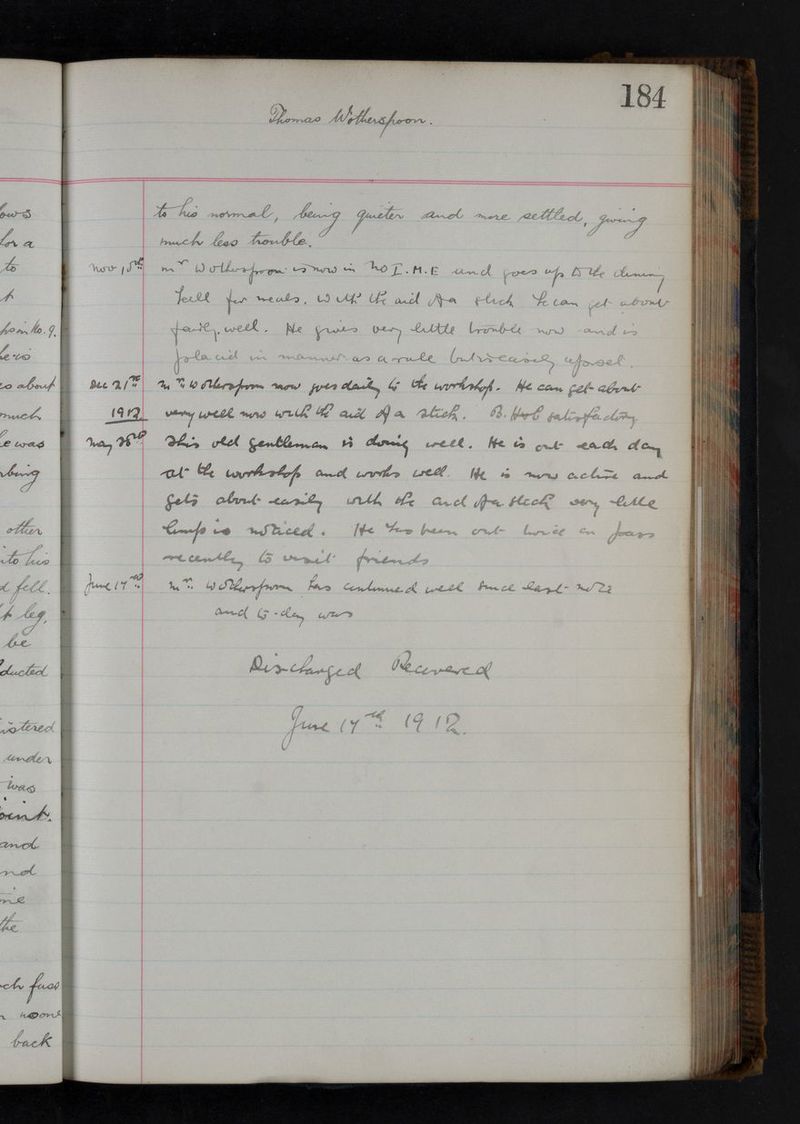 184
Thomas Wotherspoon.
to his normal, being quieter and more settled, giving
much less trouble.
Nov 15th Mr Wotherspoon is now in No I. M.E and goes up to the dining
hall for meals. With the aid of a stick he can get about
fairly well. He gives very little trouble now and is
placid in manner as a rule but is easily upset.
Dec 21st Mr Wotherspoon now goes daily to the workshop. He can get about
1912 very well now with the aid of a stick. B. Hob satisfactory
May 28th This old gentleman is doing well. He is out each day
at the workshop and works well. He is now active and
gets about easily with the aid of a stick very little
limp is noticed. He has been out twice on pass
recently to visit friends
June 17th Mr Wotherspoon has continued well since last note
and to-day was
Discharged Recovered
June 17th 1912.
ows
for a
to
No. 9.
he is
so about
much
he was
other
into his
d fell.
leg.
be
ducted
istered
under
was
oint.
and
nd
me
the
ch fuss
back